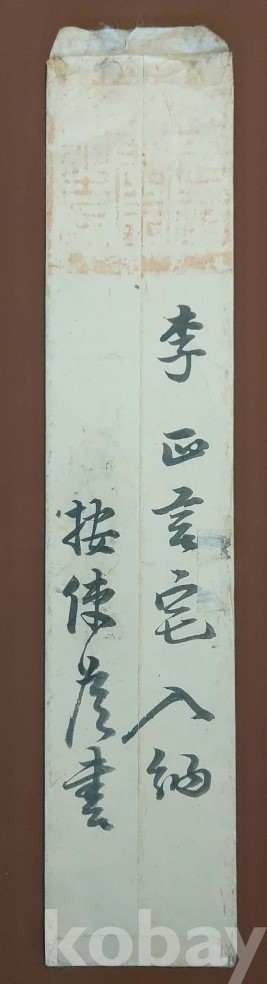 李正言宅入納
按使度書
kobay